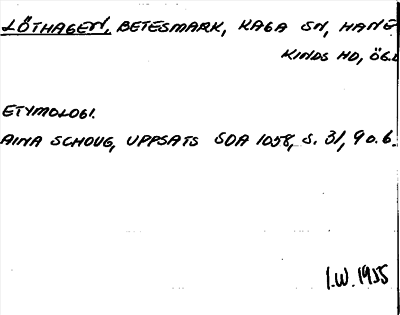 LÖTHAGEN, BETESMARK, KAGA SN, HANE-
KINDS HD, ÖGL
ETYMOLOGI.
AINA SCHOUG, UPPSATS SOA 1058, S. 31, 9 o. 6.
I.W. 1955